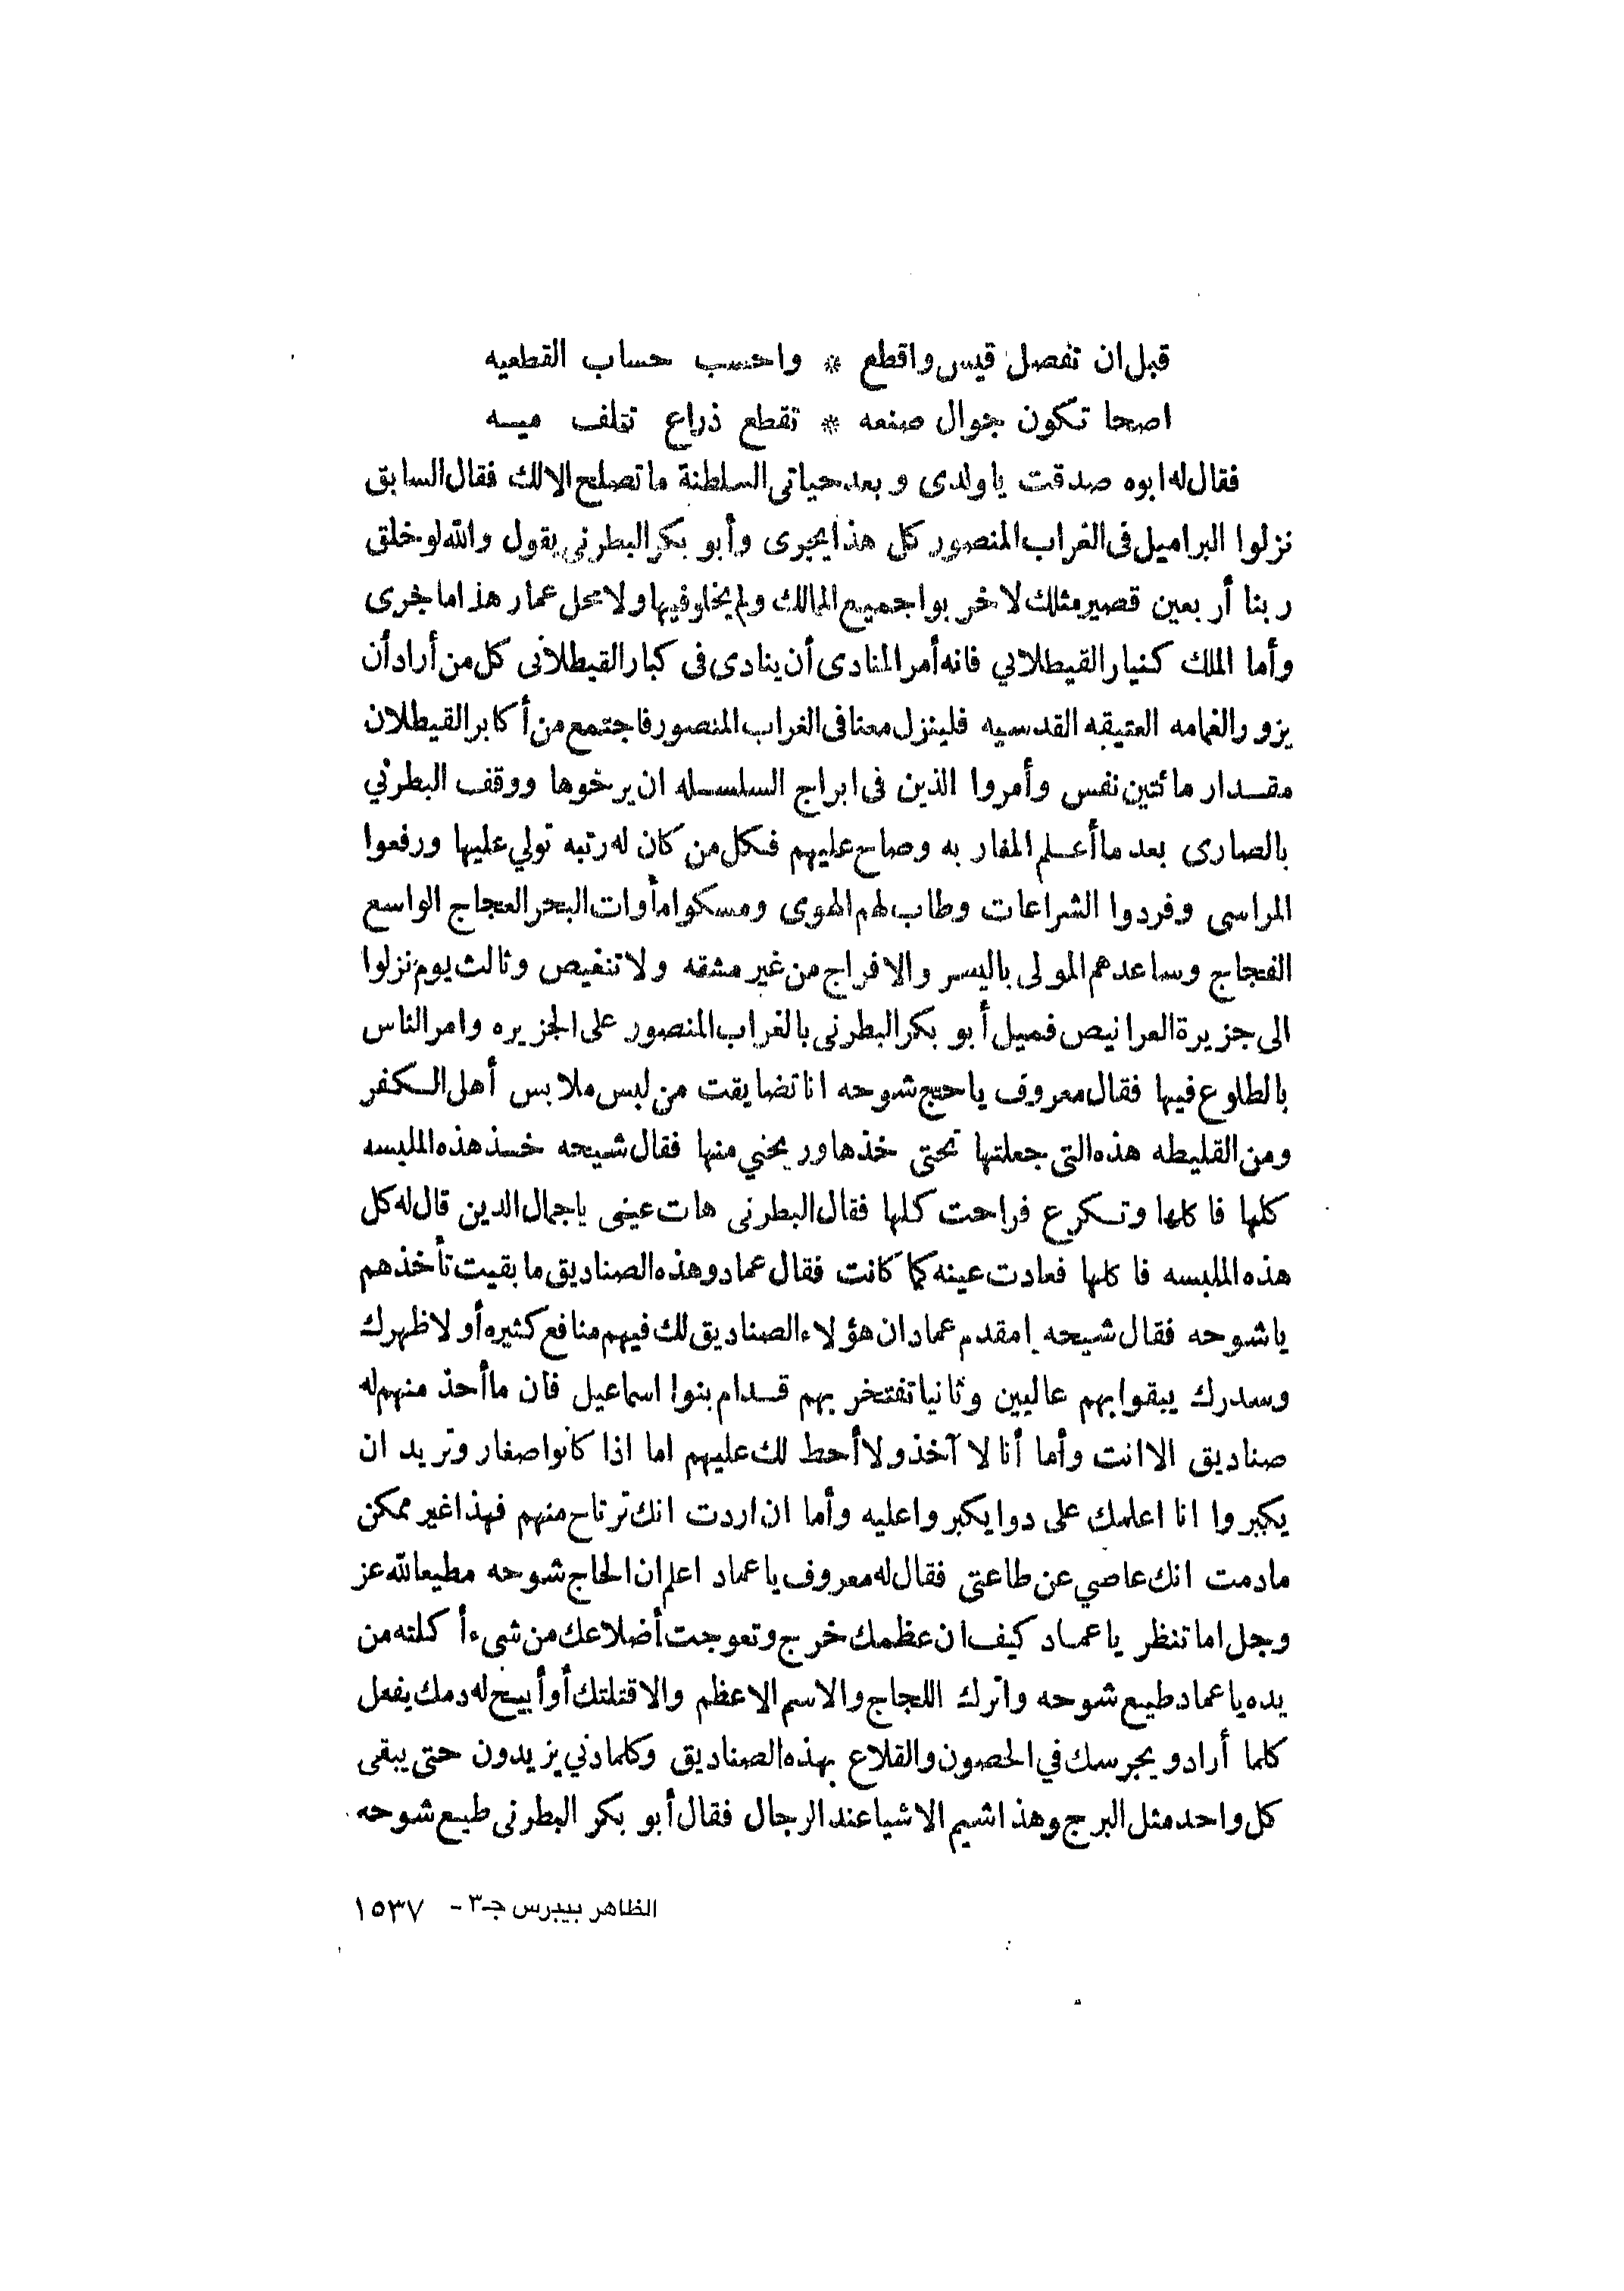 قبل ان تفصل قيس واقطع * واحسب حساب القطعيه
اصحا تكون جوال صنعه * تقطع ذراع تتلف ميه
فقال له ابوه صدقت ياولدى وبعد حياتى السلطنة ماتصلح الالك فقال السابق
نزلوا البراميل فى الغراب المنصور كل هذا يجرى وأبو بكر البطرنى يقول والله لو خلق
ربنا أربعين قصير مثلك لاخربوا جميع الممالك ولم يخلو فيها ولا محل عمار هذا ما جرى
وأما الملك كنيار القيطلانى فانه أمر المنادى أن ينادى فى كبار القيطلانى كل من أراد أن
يزور والغمامه العتيقه القدسيه فلينزل معنا فى الغراب المنصور فاجتمع من أكابر القيطلان
مقدار مائتين نفس وأمروا الذين فى ابراج السلسله ان يرخوها ووقف البطرني
بالصارى بعد ما أعلم المغاربه وصاح عليهم فكل من كان له رتبه تولي عليها ورفعوا
المراسى وفردوا الشراعات وطاب لهم الهوى ومسكوا مأوات البحر العجاج الواسع
الفجاج وساعدهم المولى باليسر والافراج من غير مشقه ولا تنغيص وثالث يوم نزلوا
الى جزيرة العرانيص فميل أبو بكر البطرنى بالغراب المنصور على الجزيره وامر الناس
بالطلوع فيها فقال معروف ياحج شوحه انا تضايقت من لبس ملابس أهل الكفر
ومن القليطه هذه التى جعلتها تحتى خذها وريحني منها فقال شيحه خذ هذه الملبسه
كلها فاكلها وتكرع فراحت كلها فقال البطرنى هات عينى ياجمال الدين قال له كل
هذه الملبسه فاكلها فعادت عينه كما كانت فقال عماد وهذه الصناديق ما بقيت تأخذهم
ياشوحه فقال شيحه يامقدم عماد ان هؤلاء الصناديق لك فيهم منافع كثيره أولا ظهرك
وسدرك يبقوا بهم عاليين وثانيا تفتخر بهم قدام بنوا اسماعيل فان ما أحد منهم له
صناديق الا انت وأما أنا لا آخذ ولا أحط لك عليهم اما اذا كانوا صغار وتريد ان
يكبروا انا اعلمك على دوا يكبروا عليه وأما ان اردت انك ترتاح منهم فهذا غير ممكن
مادمت انك عاصي عن طاعتى فقال له معروف ياعماد اعلم ان الحاج شوحه مطيعا لله عز
وجل اما تنظر ياعماد كيف ان عظمك خرج وتعوجت أضلاعك من شىء أكلته من
يده ياعماد طيع شوحه واترك اللجاج والاسم الاعظم والا قتلتك أو أبيح له دمك يفعل
كلما أراد ويجرسك في الحصون والقلاع بهذه الصناديق وكلمادني يزيدون حتى يبقى
كل واحد مثل البرج وهذا اشيم الاشيا عند الرجال فقال أبو بكر البطرنى طيع شوحه
الظاهر بيبرس جـ٣ - ١٥٣٧